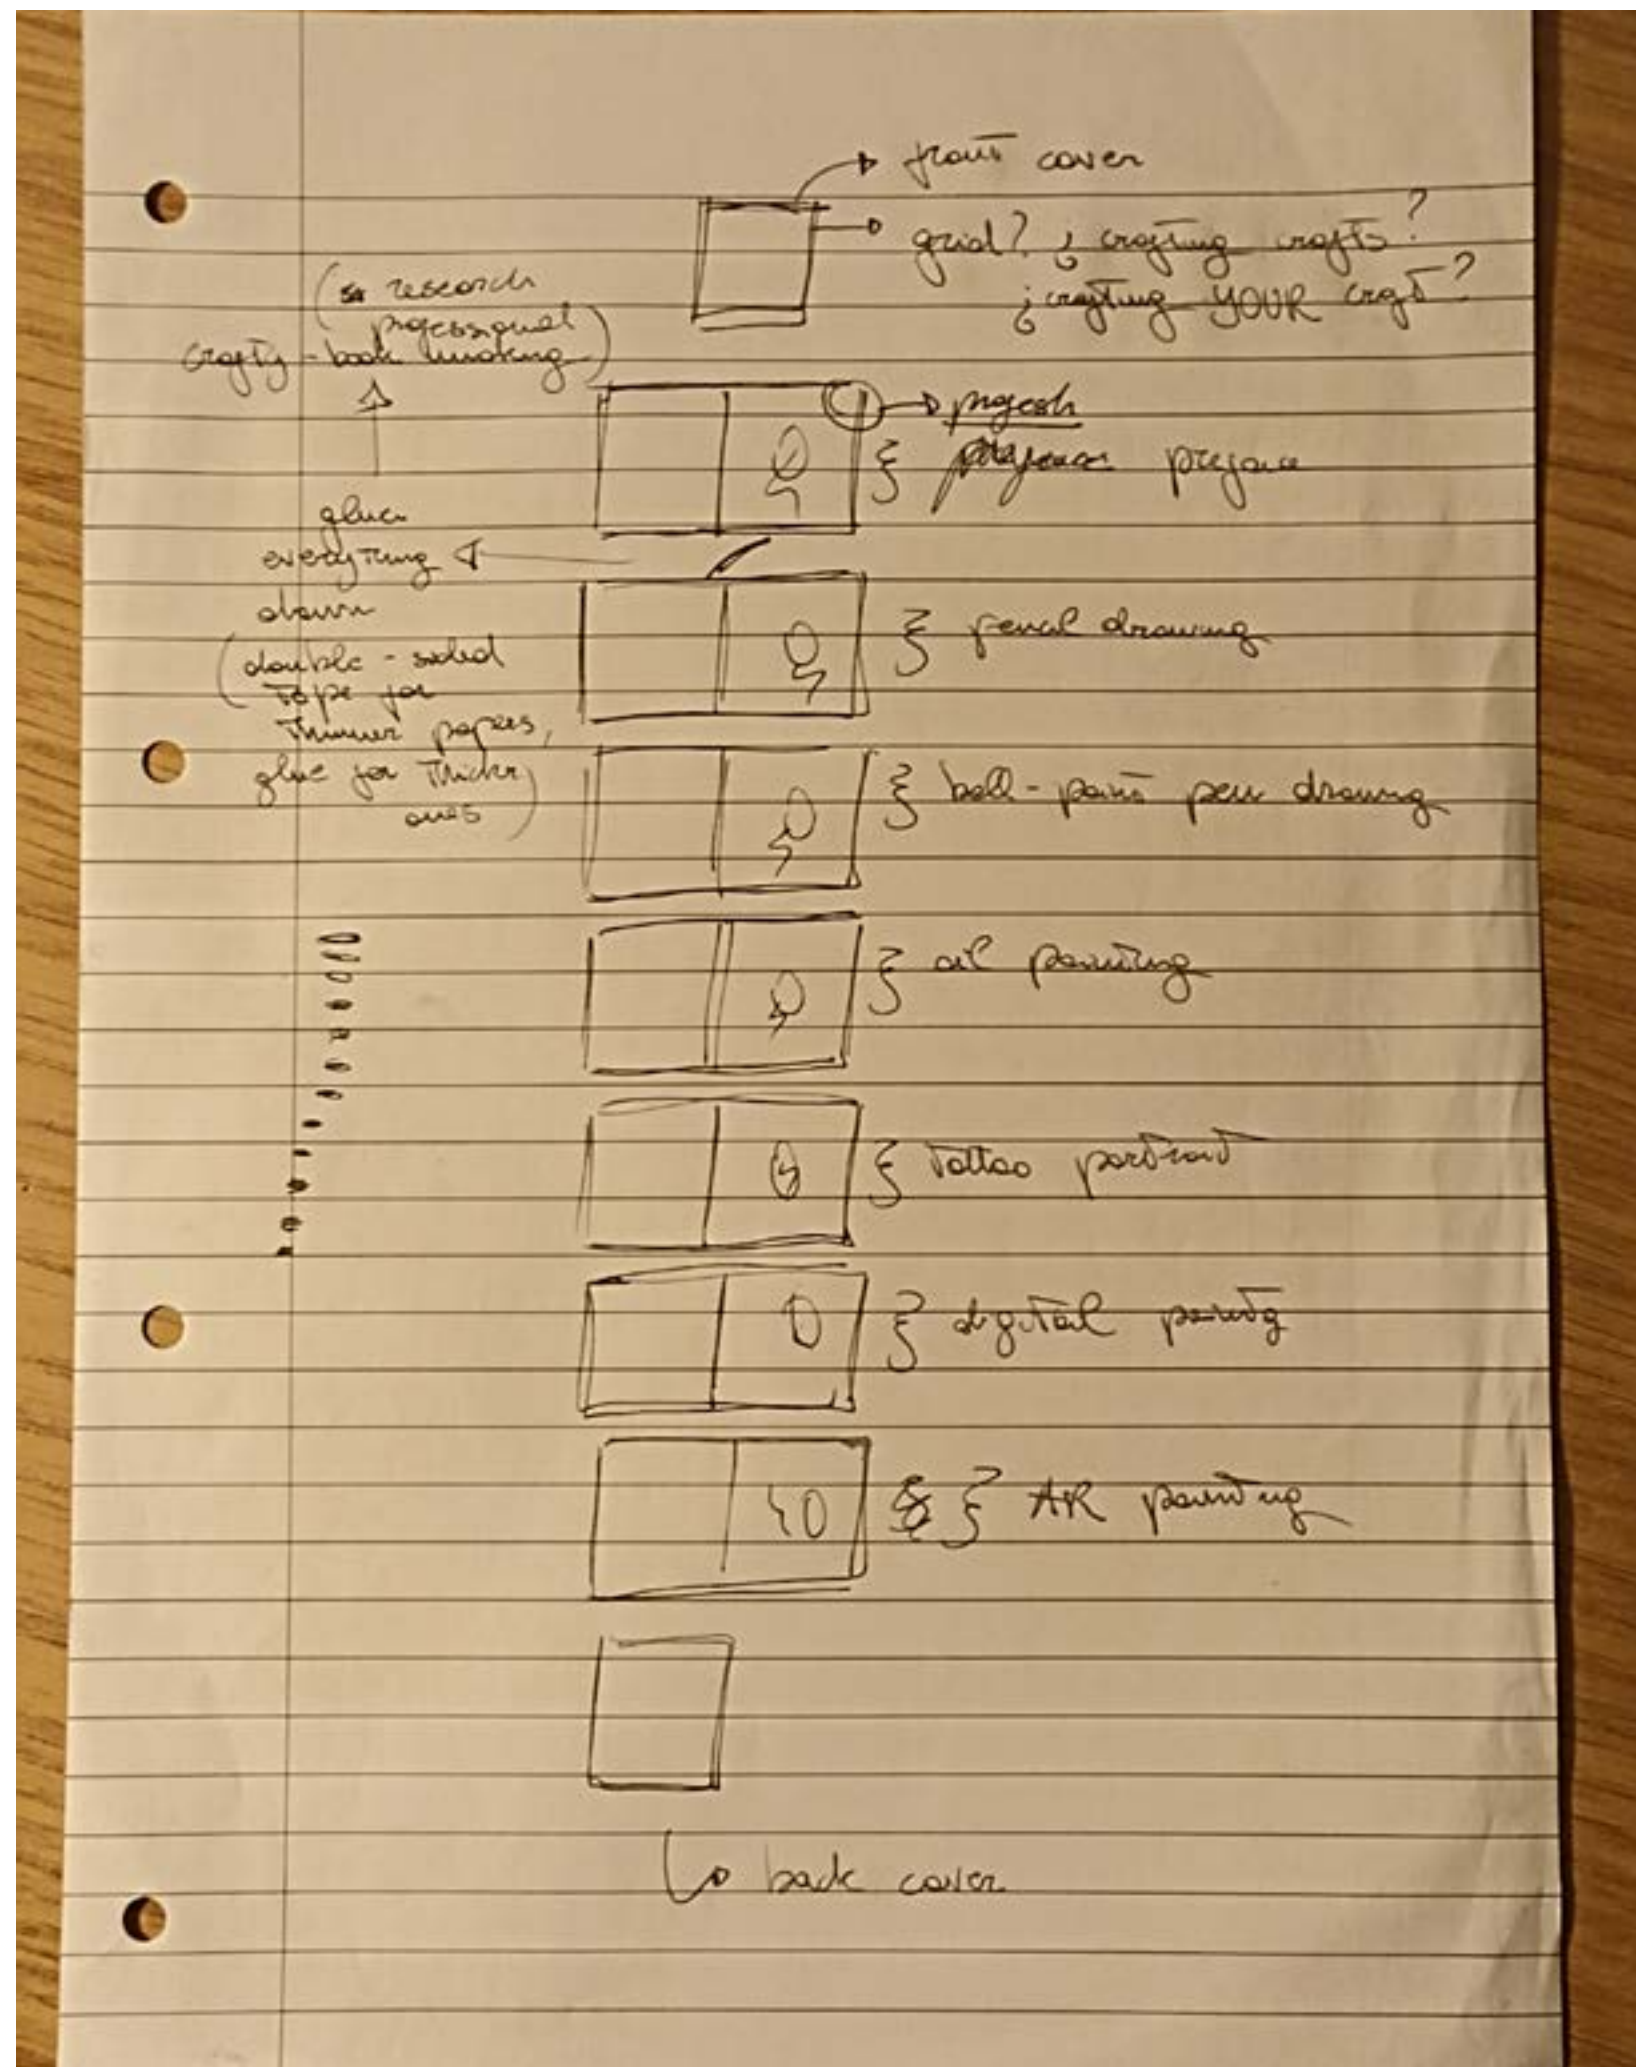 front cover
grid? ¿crafting crafts?
¿crafting YOUR craft?
(research
professional
crafty-book making)
preface
glue
everything
down
(double-sided
tape for
thinner papers,
glue for thicker
ones)
pencil drawing
ball-point pen drawing
oil painting
tattoo portrait
digital painting
AR painting
back cover